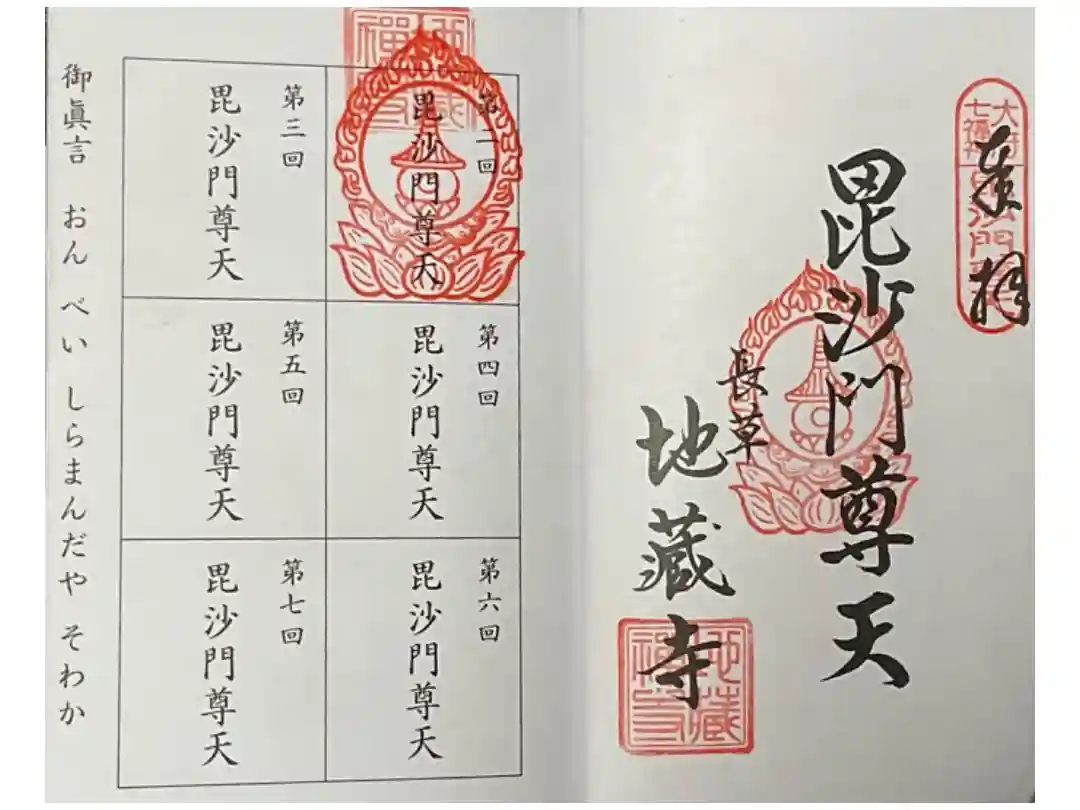 奉拝
大府七福神 毘沙門天
毘沙門尊天
長草
地藏寺
地藏禅寺
第二回
毘沙門尊天
第三回
毘沙門尊天
第四回
毘沙門尊天
第五回
毘沙門尊天
第六回
毘沙門尊天
第七回
毘沙門尊天
御眞言 おん べい しらまんだや そわか